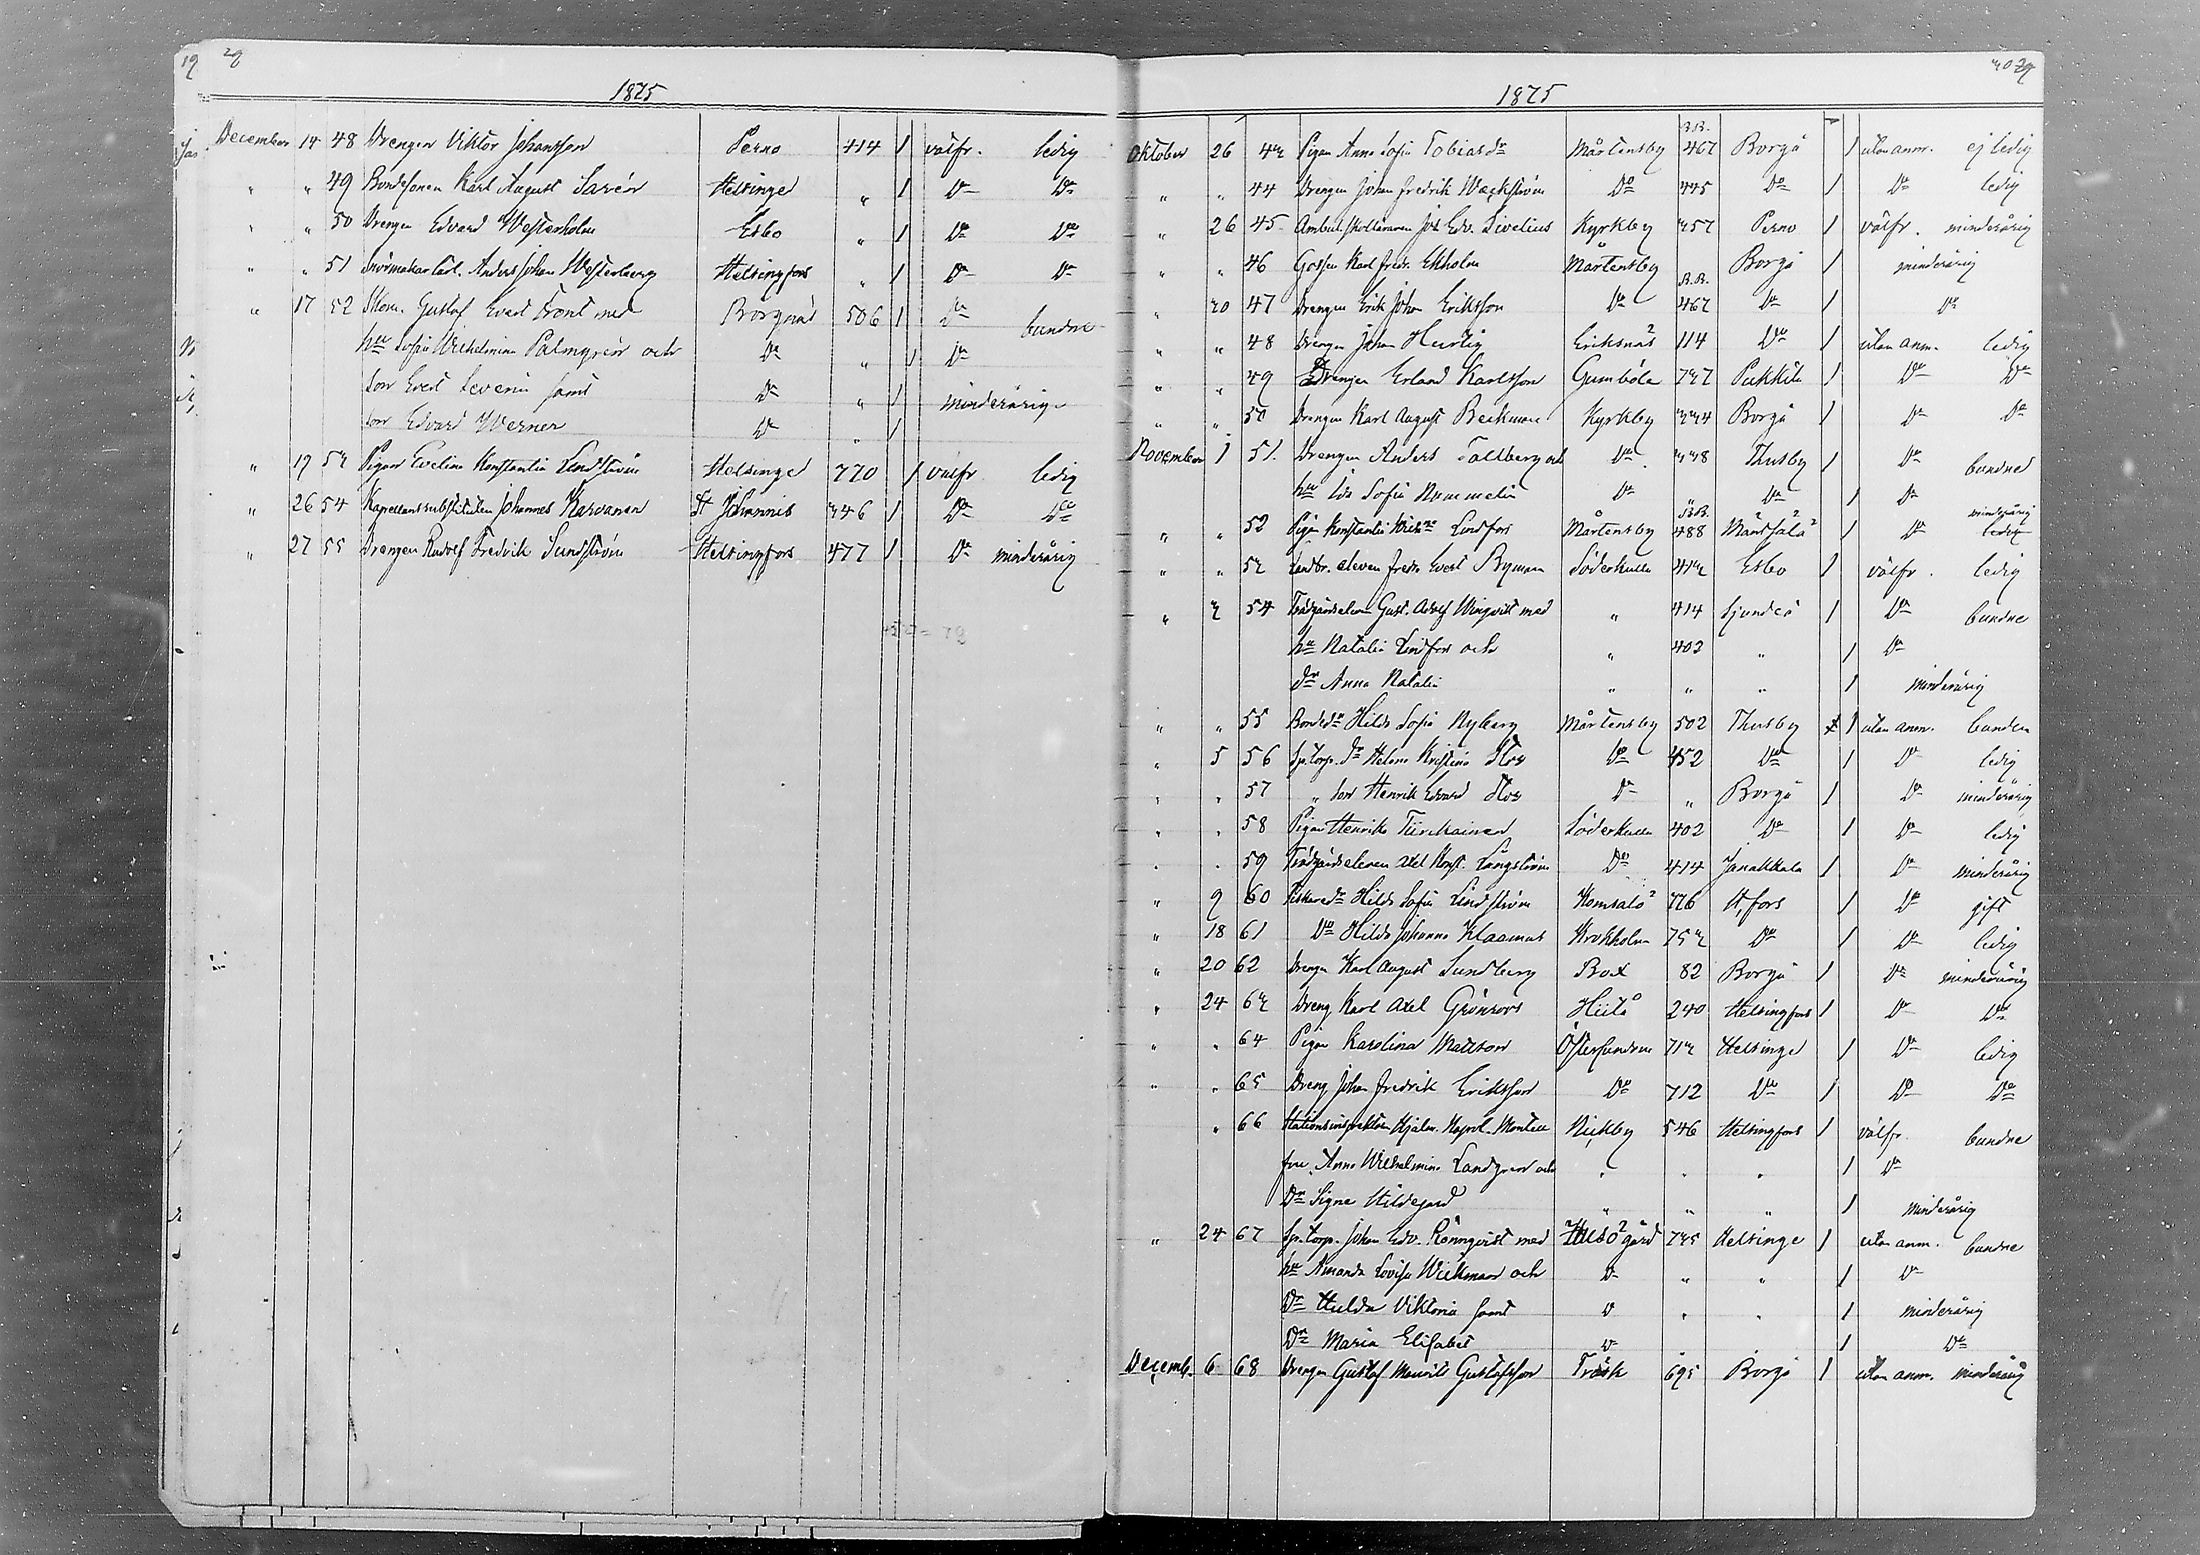 29
1875
December 14 48 Drengen Viktor Johansson Perno 414 1 välfr. ledig
" " 49 Bondesonen Karl August Savén Helsinge " 1 Do Do
" " 50 Drengen Edvard Westerholm Esbo " 1 Do Do
" " 51 Anders Johan Westerberg Helsingfors " 1 Do Do
" 17 52 Skom. Gustaf Evert Front med Borgnäs 506 1 Do bundne
hu Sofia Wilhelmina Palmgrén och Do " 1 Do
son Evert Severin samt Do " 1 minderårige
son Edvard Werner Do " 1
" 19 53 Pigan Evelina Konstantia Lindström Helsinge 770 1 välfr. ledig
" 26 54 Kapellanssubstituten Johannes Karvonen St Johannis 346 1 Do Do
" 27 55 Drengen Rudolf Fredrik Sundström Helsingfors 477 1 Do minderårig
30
1875
Oktober 26 43 Pigan Anna Sofia Tobiasdr Mårtensby R.B. 467 Borgå 1 utan anm. ej ledig
" " 44 Drengen Johan Fredrik Wackström Do 445 Do 1 Do ledig
" 26 45 Ambul. skolläraren Joh Edv. Sivelius Kyrkby 357 Perno 1 välfr. minderårig
" " 46 Gossen Karl Fredr. Ekholm Mårtensby Borgå 1 minderårig
" 30 47 Drengen Erik Johan Eriksson Do R.B. 467 Do 1 Do
" " 48 Drengen Johan Hurtig Eriksnäs 114 Do 1 utan anm. ledig
" " 49 Drengen Erland Karlsson Gumböle 737 Pukkila 1 Do Do
" " 50 Drengen Karl August Beckman Kyrkby 334 Borgå 1 Do Do
November 1 51. Drengen Anders Tallberg och Do 338 Thusby 1 Do bundne
hu Ida Sofia Do " Do 1 Do
" " 52 Pigan Konstantia Lindfors Mårtensby R.B. 488 Mäntsälä 1 Do minderårig ledig
" " 53 Landbr. eleven Fredr. Evert Ryman Söderkulla 413 Esbo 1 välfr. ledig
" 3 54 Trädgårdseleven Gust. Adolf Wingvist med " 414 Sjundeå 1 Do bundne
hu Natalia Lindfors och " 403 " 1 Do
dr Anna Natalia " " " 1 minderårig
" " 55 Bondedr Hilda Sofia Nyberg Mårtensby 502 Thusby 1 utan anm. bunden
" 5 56 Sp.torp. dr Helena Kristina Flor Do 452 Do 1 Do ledig
" " 57 " son Henrik Edvard Flor Do " Borgå 1 Do minderårig
" " 58 Pigan Henrika Tiirikainen Söderkulla 402 Do 1 Do ledig
" " 59 Trädgårdseleven Axel Konst. Långström Do 414 Janakkala 1 Do minderårig
" 9 60 Fiskaredr Hilda Sofia Lindström Komsalö 776 H,fors 1 Do gift
" 18 61 Do Hilda Johanna Klasmus Krokholm 753 Do 1 Do ledig
" 20 62 Drengen Karl August Sundberg Box 82 Borgå 1 Do minderårig
" 24 63 Dreng Karl Axel Grönroos Hiitå 240 Helsingfors 1 Do Do
" " 64 Pigan Karolina Mattson Östersundom 713 Helsinge 1 Do ledig
" " 65 Dreng Johan Fredrik Eriksson Do 712 Do 1 Do Do
" 66 Stationsinspektoren Hjalm. Napol. Montell Nickby 546 Helsingfors 1 välfr. bundne
fru Anna Wilhelmina Landgren och " " " 1 Do
Dr Signe Hildegard " " " 1 minderårig
" 24 67 Sp.torp. Johan Edv. Rönnqvist med gård 735 Helsinge 1 utan anm. bundne
hu Amanda Lovisa Wickman och Do " " 1 Do
Dr Hulda Viktoria samt Do " " 1 minderårig
Dr Maria Elisabet Do 1 Do
Decemb. 6 68 Drengen Gustaf Mauritz Gustafsson Träsk 695 Borgå 1 utan anm. minderårig